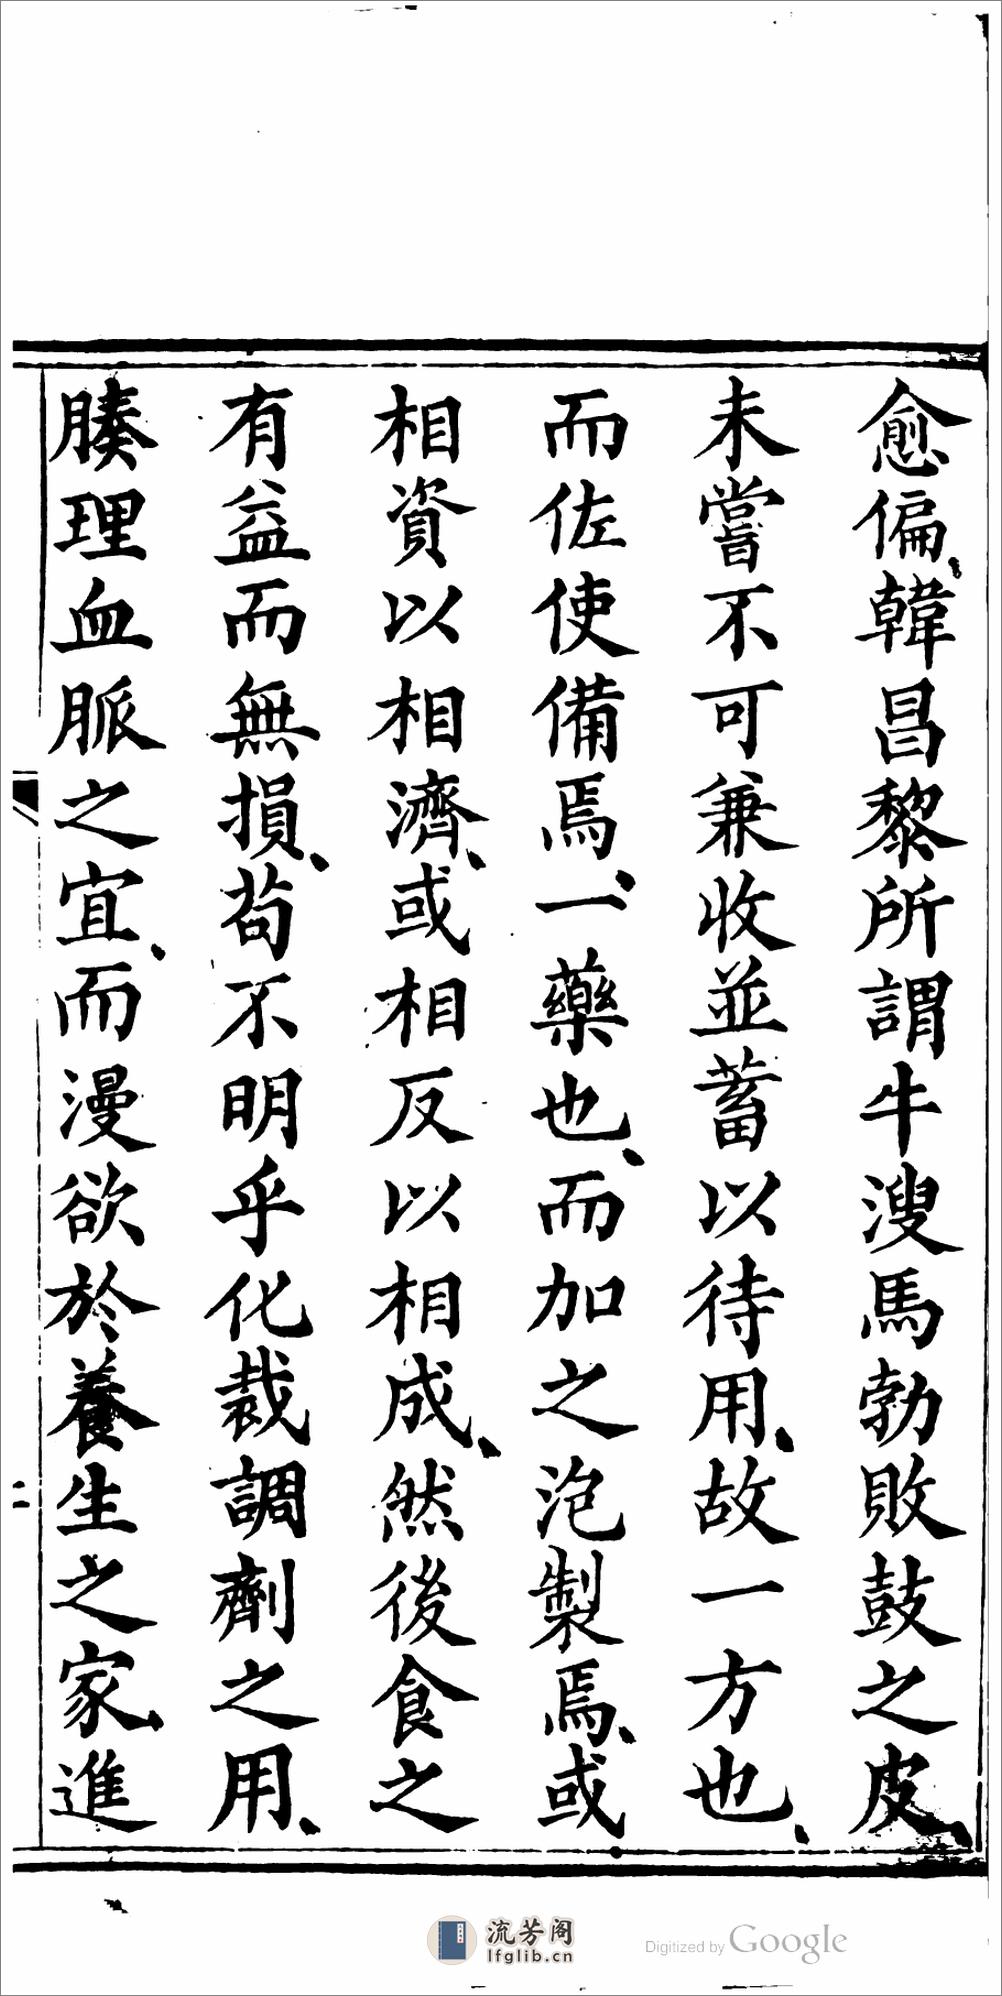 愈偏、韓昌黎所謂牛溲馬勃敗鼓之皮、
未嘗不可兼收並蓄以待用、故一方也、
而佐使備焉、一藥也、而加之泡製焉、或
相資以相濟、或相反以相成、然後食之
有益而無損、苟不明乎化裁調劑之用、
腠理血脈之宜、而漫欲於養生之家、進
流芳阁
lfglib.cn
Digitized by Google